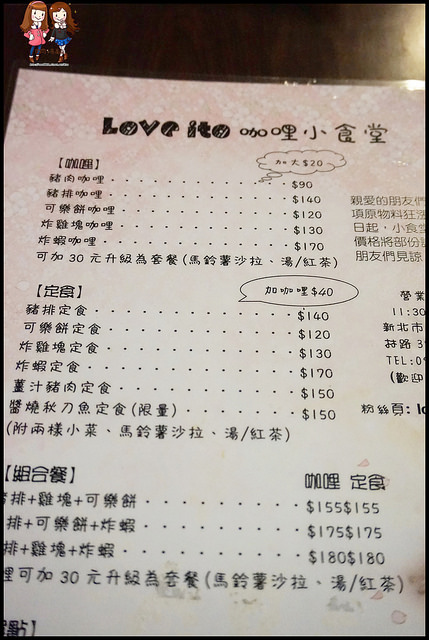 Love ito 咖哩小食堂
【咖哩】
加大$20
豬肉咖哩 $90
豬排咖哩 $140
可樂餅咖哩 $120
炸雞塊咖哩 $130
炸蝦咖哩 $170
可加 30 元升級為套餐(馬鈴薯沙拉、湯/紅茶)
親愛的朋友們
項原物料狂漲
日起，小食堂
價格將部份
朋友們見諒
【定食】
加咖哩$40
豬排定食 $140
可樂餅定食 $120
炸雞塊定食 $130
炸蝦定食 $170
薑汁豬肉定食 $150
醬燒秋刀魚定食(限量) $150
(附兩樣小菜、馬鈴薯沙拉、湯/紅茶)
營業
11:30
新北市
路 3
TEL:0
(歡迎
粉絲頁: lo
【組合餐】 咖哩 定食
排+雞塊+可樂餅 $155 $155
排+可樂餅+炸蝦 $175 $175
排+雞塊+炸蝦 $180 $180
哩可加 30 元升級為套餐(馬鈴薯沙拉、湯/紅茶)
點】